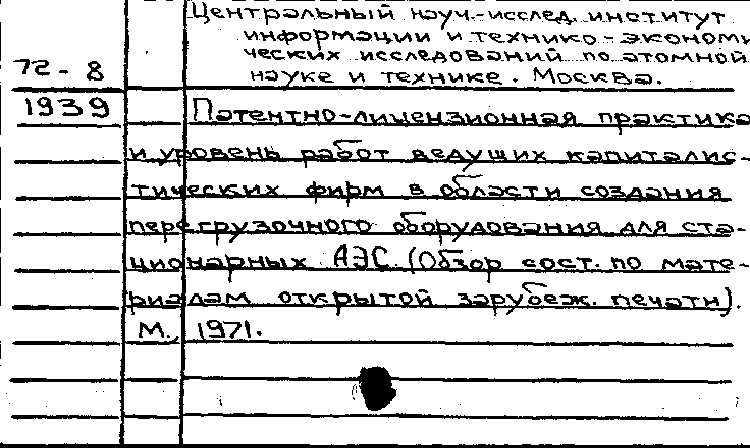 Центральный науч.-исслед. институт
информации и технико-экономи
ческих исследований по атомной
72-8 науке и технике. Москва.
1939 Патентно-лицензионная практика
и уровень работ ведущих капиталис-
тических фирм в области создания
перегрузочного оборудования для ста-
ционарных АЭС. (Обзор сост. по мате-
риалам открытой зарубеж. печати).
М., 1971.